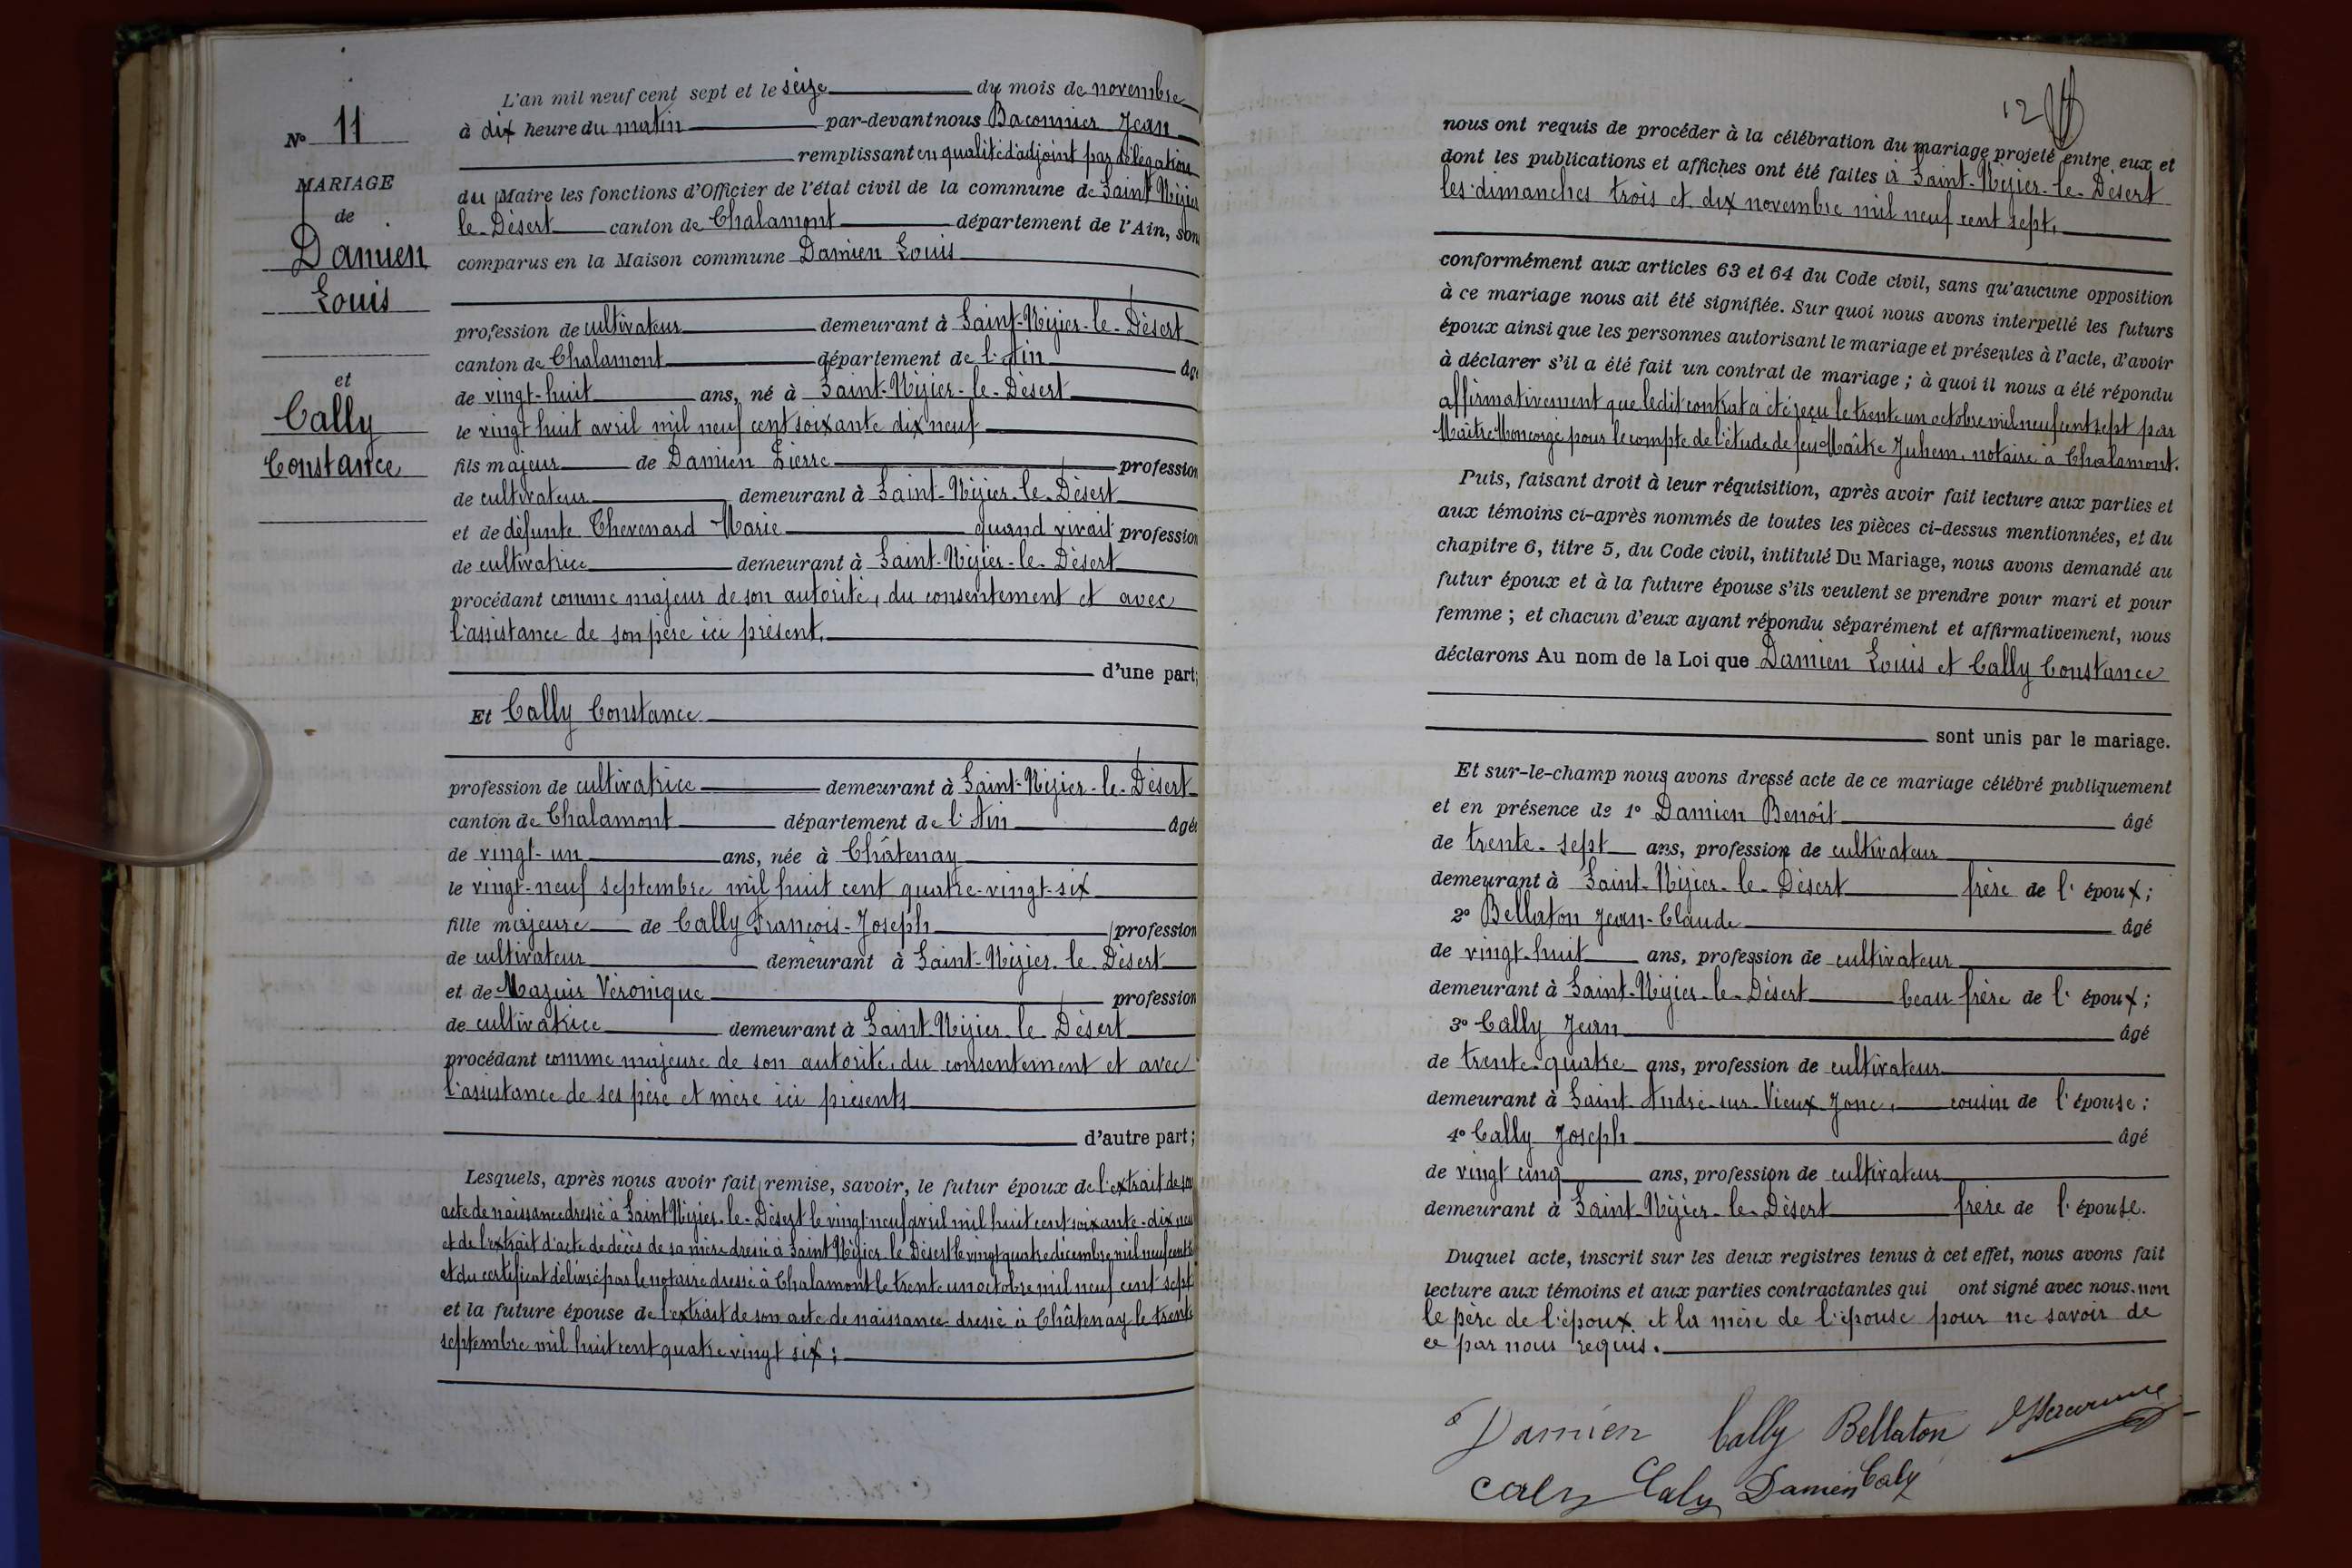 N° 11
MARIAGE
de
Damien
Louis
et
Cally
Constance
L'an mil neuf cent sept et le seize du mois de novembre
à dix heure du matin par-devant nous Baconnier Jean
remplissant en qualité d'adjoint par délégation
du Maire les fonctions d'Officier de l'état civil de la commune de Saint Nizier
le-Désert canton de Chalamont département de l'Ain, son
comparus en la Maison commune Damien Louis
profession de cultivateur demeurant à Saint-Nizier-le-Désert
canton de Chalamont département de l'Ain âgé
de vingt-huit ans, né à Saint-Nizier-le-Désert
le vingt huit avril mil neuf cent soixante dix neuf
fils majeur de Damien Pierre profession
de cultivateur demeurant à Saint-Nizier-le-Désert
et de défunte Thevenard Marie quand vivait profession
de cultivatrice demeurant à Saint-Nizier-le-Désert
procédant comme majeur de son autorité, du consentement et avec
l'assistance de son père ici présent.
d'une part;
Et Cally Constance
profession de cultivatrice demeurant à Saint-Nizier-le-Désert
canton de Chalamont département de l'Ain âgée
de vingt-un ans, née à Châtenay
le vingt-neuf septembre mil huit cent quatre-vingt-six
fille majeure de Cally François-Joseph profession
de cultivateur demeurant à Saint-Nizier-le-Désert
et de Mazuir Véronique profession
de cultivatrice demeurant à Saint-Nizier-le-Désert
procédant comme majeure de son autorité, du consentement et avec
l'assistance de ses père et mère ici présents
d'autre part;
Lesquels, après nous avoir fait remise, savoir, le futur époux de l'extrait de son
acte de naissance dressé à Saint Nizier-le-Désert le vingt-neuf avril mil huit cent soixante-dix neuf
et de l'extrait d'acte de décès de sa mère dressé à Saint Nizier-le-Désert le vingt quatre décembre mil neuf cent
et du certificat délivré par le notaire dressé à Chalamont le trente un octobre mil neuf cent sept
et la future épouse de l'extrait de son acte de naissance dressé à Châtenay le trente
septembre mil huit cent quatre vingt six;
12
nous ont requis de procéder à la célébration du mariage projeté entre eux et
dont les publications et affiches ont été faites à Saint-Nizier-le-Désert
les dimanches trois et dix novembre mil neuf cent sept.
conformément aux articles 63 et 64 du Code civil, sans qu'aucune opposition
à ce mariage nous ait été signifiée. Sur quoi nous avons interpellé les futurs
époux ainsi que les personnes autorisant le mariage et présentes à l'acte, d'avoir
à déclarer s'il a été fait un contrat de mariage; à quoi il nous a été répondu
affirmativement que ledit contrat a été reçu le trente un octobre mil neuf cent sept par
Maître Moncorgé pour le compte de l'étude de feu Maître Juhem, notaire à Chalamont.
Puis, faisant droit à leur réquisition, après avoir fait lecture aux parties et
aux témoins ci-après nommés de toutes les pièces ci-dessus mentionnées, et du
chapitre 6, titre 5, du Code civil, intitulé Du Mariage, nous avons demandé au
futur époux et à la future épouse s'ils veulent se prendre pour mari et pour
femme; et chacun d'eux ayant répondu séparément et affirmativement, nous
déclarons Au nom de la Loi que Damien Louis et Cally Constance
sont unis par le mariage.
Et sur-le-champ nous avons dressé acte de ce mariage célébré publiquement
et en présence de 1° Damien Benoît âgé
de trente-sept ans, profession de cultivateur
demeurant à Saint-Nizier-le-Désert frère de l'époux;
2° Bellaton Jean-Claude âgé
de vingt-huit ans, profession de cultivateur
demeurant à Saint-Nizier-le-Désert beau frère de l'époux;
3° Cally Jean âgé
de trente-quatre ans, profession de cultivateur
demeurant à Saint-André-sur-Vieux-Jonc, cousin de l'épouse:
4° Cally Joseph âgé
de vingt cinq ans, profession de cultivateur
demeurant à Saint-Nizier-le-Désert frère de l'épouse.
Duquel acte, inscrit sur les deux registres tenus à cet effet, nous avons fait
lecture aux témoins et aux parties contractantes qui ont signé avec nous. non
le père de l'époux et la mère de l'épouse pour ne savoir de
ce par nous requis.
Damien Cally Bellaton
Caly Caly Damien Caly